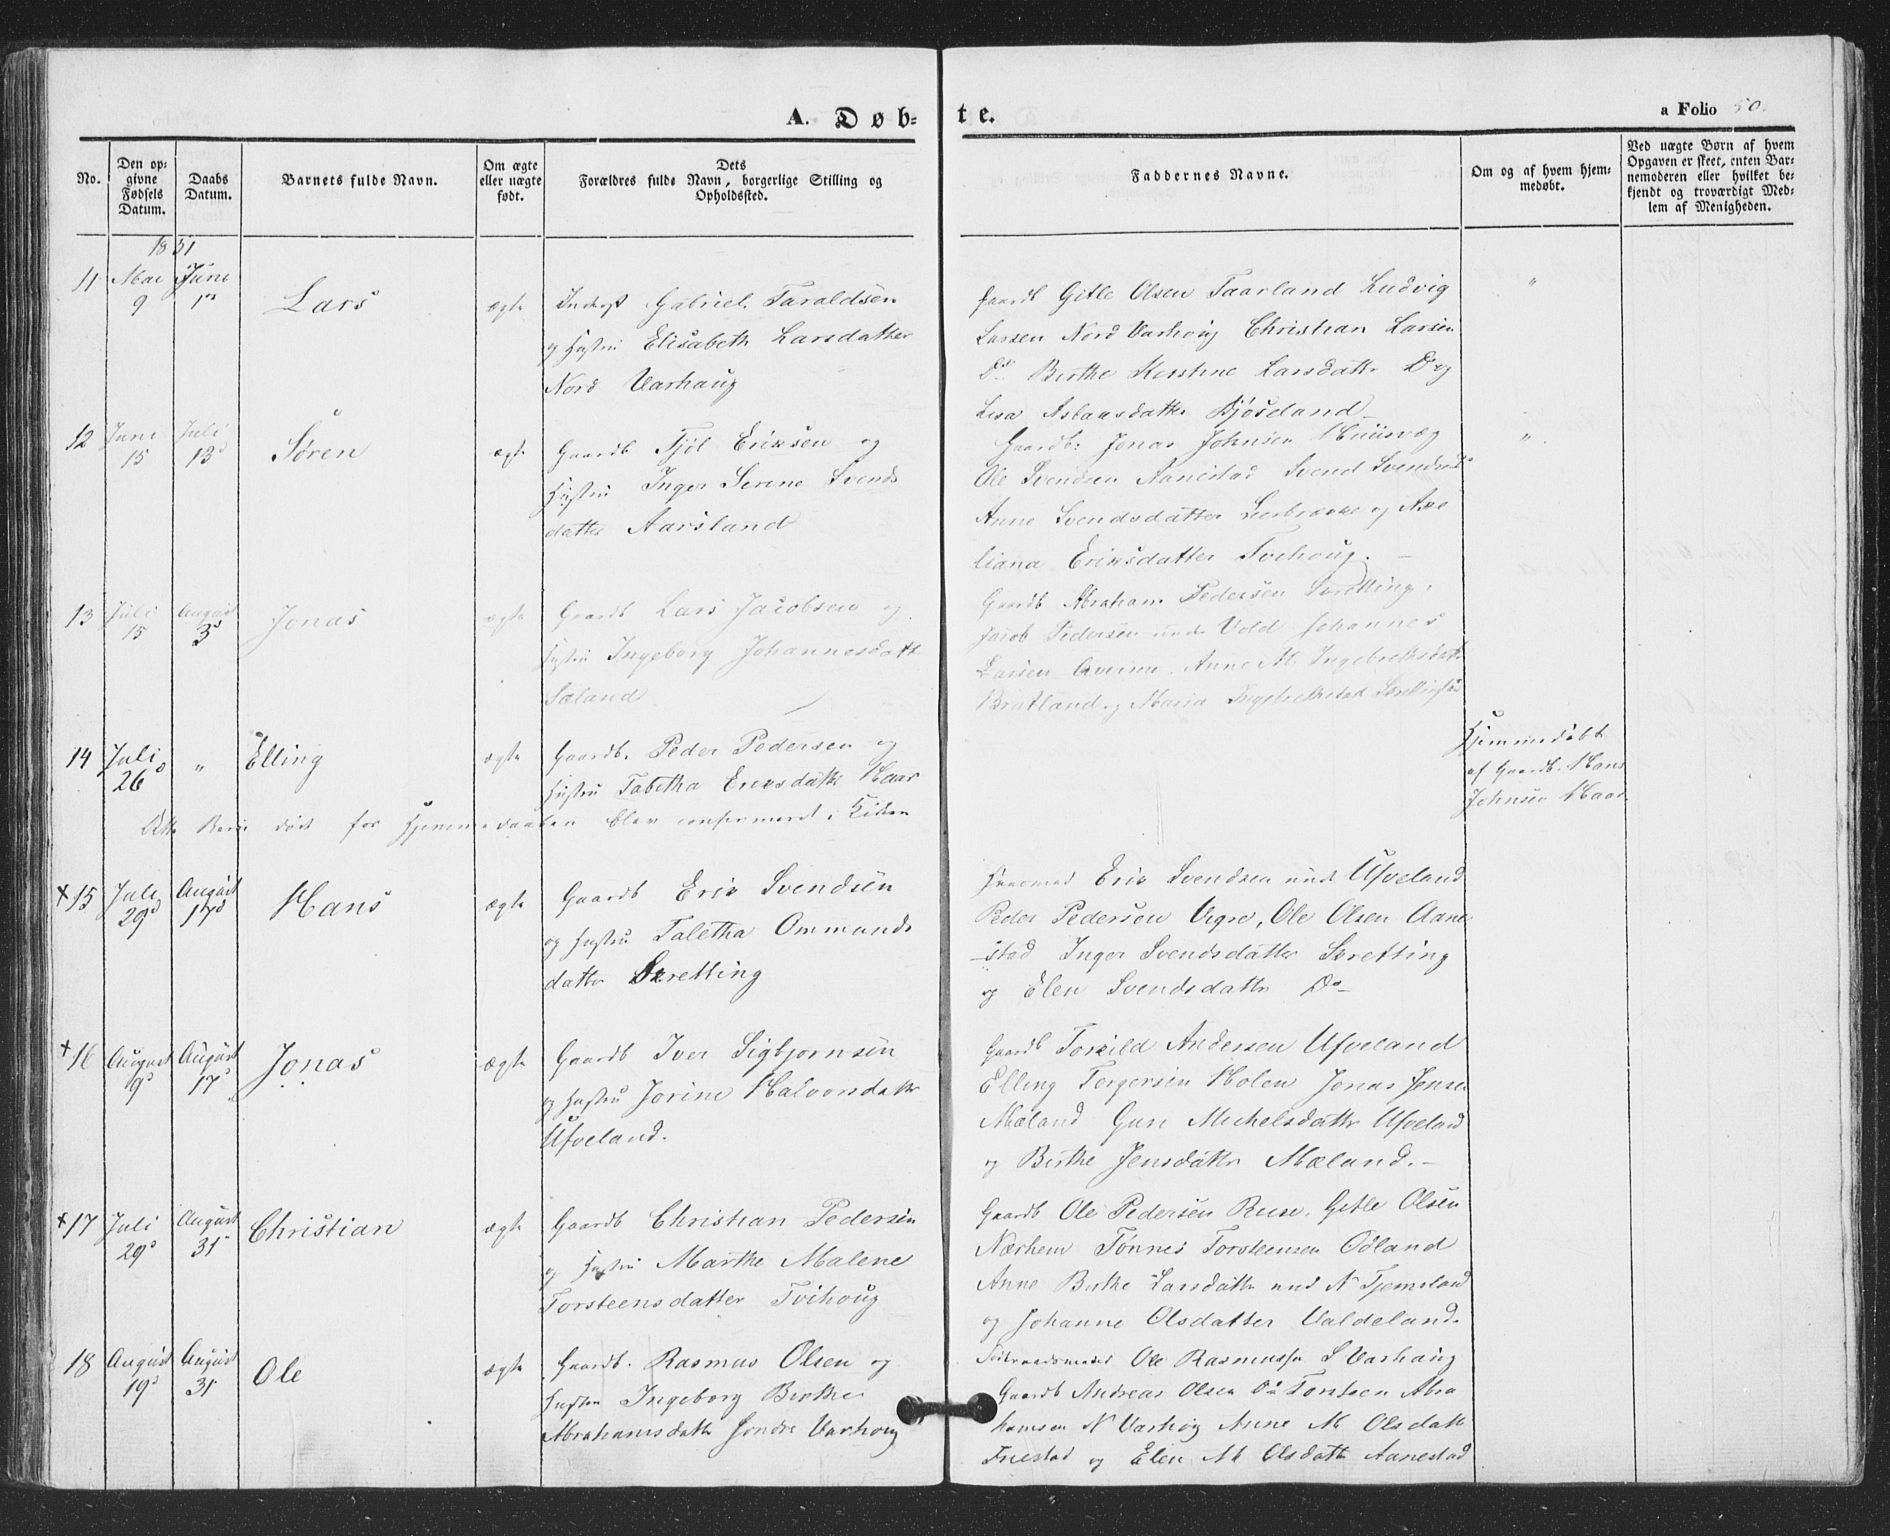 A. Døb-
te.
a Folio 50.
No.
Den op-
givne
Fødsels
Datum.
Daabs
Datum.
Barnets fulde Navn.
Om ægte
eller uægte
født.
Dets
Forældres fulde Navn, borgerlige Stilling og
Opholdssted.
Faddernes Navne.
Om og af hvem hjem-
medøbt.
Ved uægte Børn af hvem
Opgaven er skeet, enten Bar-
nemoderen eller hvilket be-
kjendt og troværdigt Med-
lem af Menigheden.
1851
11 Mai 9 Juni 1 Lars ægte
Gabriel Taraldsen
og Hustru Elisabeth Larsdatter
Nord Varhaug
Gaardb Gitle Olsen Taarland Ludvig
Larsen Nord Varhoug Christian Larsen
Do Birthe Kirstine Larsdattr Do og
Lisa Asbaasdattr Bjøseland
"
12 Juni 15 Juli 13 Søren ægte
Gaardb Tjøl Eriksen og
Hustru Inger Serine Svends
datter Aarsland
Gaardb: Jonas Johnsen
Ole Svendsen Aanestad Svend Svendsen
Anne Svendsdatter og Axe
liana Eriksdatter Tvihoug.
"
13 Juli 15 August 3 Jonas ægte
Gaardb Lars Jacobsen og
Hustru Ingeborg Johannesdatt
Sæland
Gaardb Abraham Pedersen Skretting,
Jacob Pedersen Vold Johannes
Larsen Anne M. Ingebrethsdatt
Bratland og Maria
14 Juli 26 " Elling ægte
Gaardb. Peder Pedersen og
Hustru Tabitha Eriksdattr Haar
Hjemmedøbt
af Gaardb. Hans
Johnsen Haar
Dette Barn døde før Hjemmedaaben blev confirmeret i Kirken
+ 15 Juli 29 August 17 Hans ægte
Gaardb Erik Svendsen
og Hustru Taletha Ommunds
datter Skretting
Huusmd Erik Svendsen und Ufveland
Peder Pedersen Vigre, Ole Olsen Aane
stad Inger Svendsdatter Skretting
og Elen Svendsdattr Do
+ 16 August 9 August 17 Jonas ægte
Gaardb Iver Sigbjørnsen
og Hustru Jorine Halvorsdattr
Ufveland.
Gaardb Torkild Andersen Ufveland
Elling Tergersen Holen Jonas Jensen
Mæland Guri Michelsdattr Ufveland
og Birthe Jensdattr Mæland.
+ 17 Juli 29 August 31 Christian ægte
Gaardb Christian Pedersen
og Hustru Marthe Malene
Torsteensdatter Tvihoug
Gaardb Ole Pedersen Ruse. Gitle Olsen
Nærhem Tønnes Torsteensen Odland
Anne Birthe Larsdattr und N Tjemsland
og Johanne Olsdatter Valdeland.
18 August 19 August 31 Ole ægte
Gaardb. Rasmus Olsen og
Hustru Ingeborg Birthe
Abrahamsdattr Søndre Varhoug
Ole Rasmussen S Varhaug
Gaardb Andreas Olsen Do Torsteen Abra
hamsen N Varhoug Anne M Olsdatt
og Elen M Olsdatt Aanestad